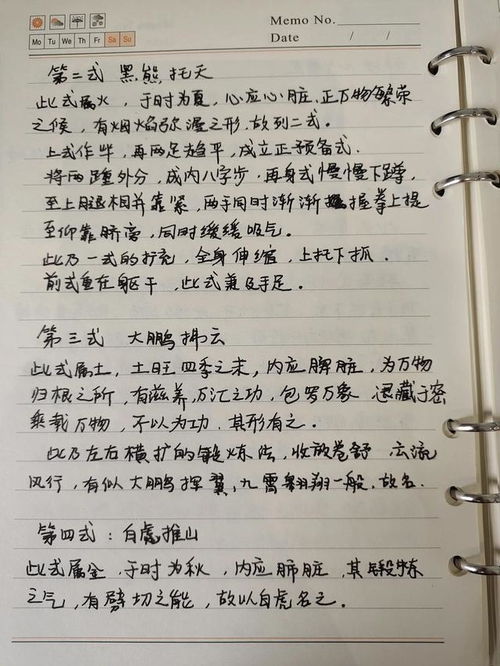 Memo No.
Mo Tu We Th Fr Sa Su
Date / /
第二式 黑熊托天
此式属火，于时为夏，心应心脏，正万物繁荣
之候，有烟焰弥漫之形，故列二式。
上式作毕，再两足趋平，成立正预备式。
将两踵外分，成内八字步，再身式慢慢下蹲，
至上腿相并靠紧，两手同时渐渐握拳上提
至仰靠脐旁，同时缓缓吸气。
此乃一式的扩充，全身伸缩，上托下抓．
前式重在躯干，此式兼及手足．
第三式 大鹏拂云
此式属土，土旺四季之末，内应脾脏，为万物
归根之所，有滋养万汇之功，包罗万象 退藏于密
乘载万物，不以为功．其形有之．
此乃左右横扩的锻炼法，收放卷舒 云流
风行，有似大鹏挥翼，九霄翱翔一般，故名．
第四式：白虎推山
此式属金，于时为秋，内应肺脏，其锻炼
之气，有劈切之能，故以白虎名之．